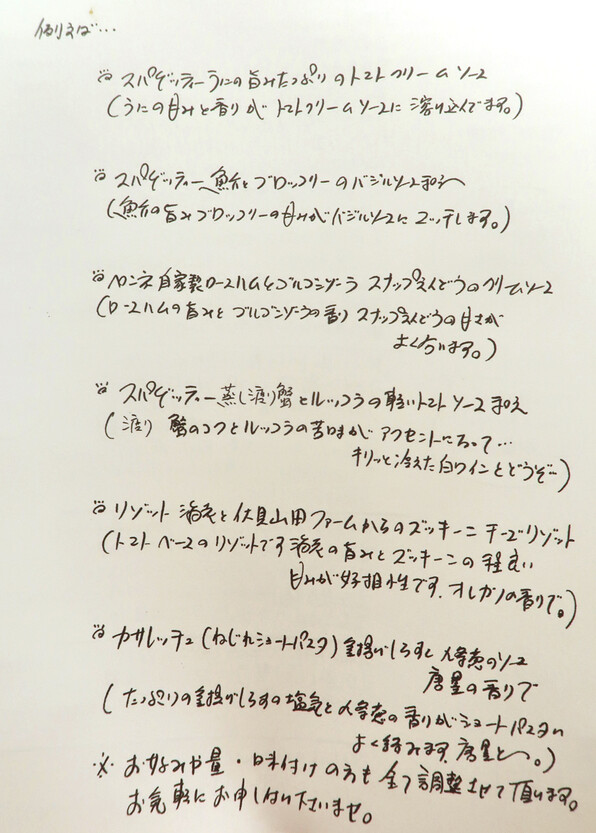 例えば…
スパゲッティーうにの旨みたっぷりのトマトクリームソース
(うにの甘みと香りがトマトクリームソースに溶け込んでます。)
スパゲッティー魚介とブロッコリーのバジルソース和え
(魚介の旨みブロッコリーの甘みがバジルソースにマッチします。)
ペンネ自家製ロースハムとゴルゴンゾーラ スナップえんどうのクリームソース
(ロースハムの旨みとゴルゴンゾーラの香り スナップえんどうの甘さが
よく合います。)
スパゲッティー蒸し渡り蟹とルッコラの軽いトマトソース和え
(渡り蟹のコクとルッコラの苦味がアクセントになって…
キリッと冷えた白ワインとどうぞ…)
リゾット 海老と伏見山田ファームからのズッキーニ チーズリゾット
(トマトベースのリゾットです海老の旨みとズッキーニの程良い
甘みが好相性です。オレガノの香りで。)
カサレッチェ(ねじれショートパスタ)釜揚げしらすと 青のソース
唐墨の香りで
(たっぷりの釜揚げしらすの塩気と の香りがショートパスタに
よく絡みます。唐墨と〜。)
※ お好みや量・味付けの方も全て調整させて頂います。
お気軽にお申し付け下さいませ。